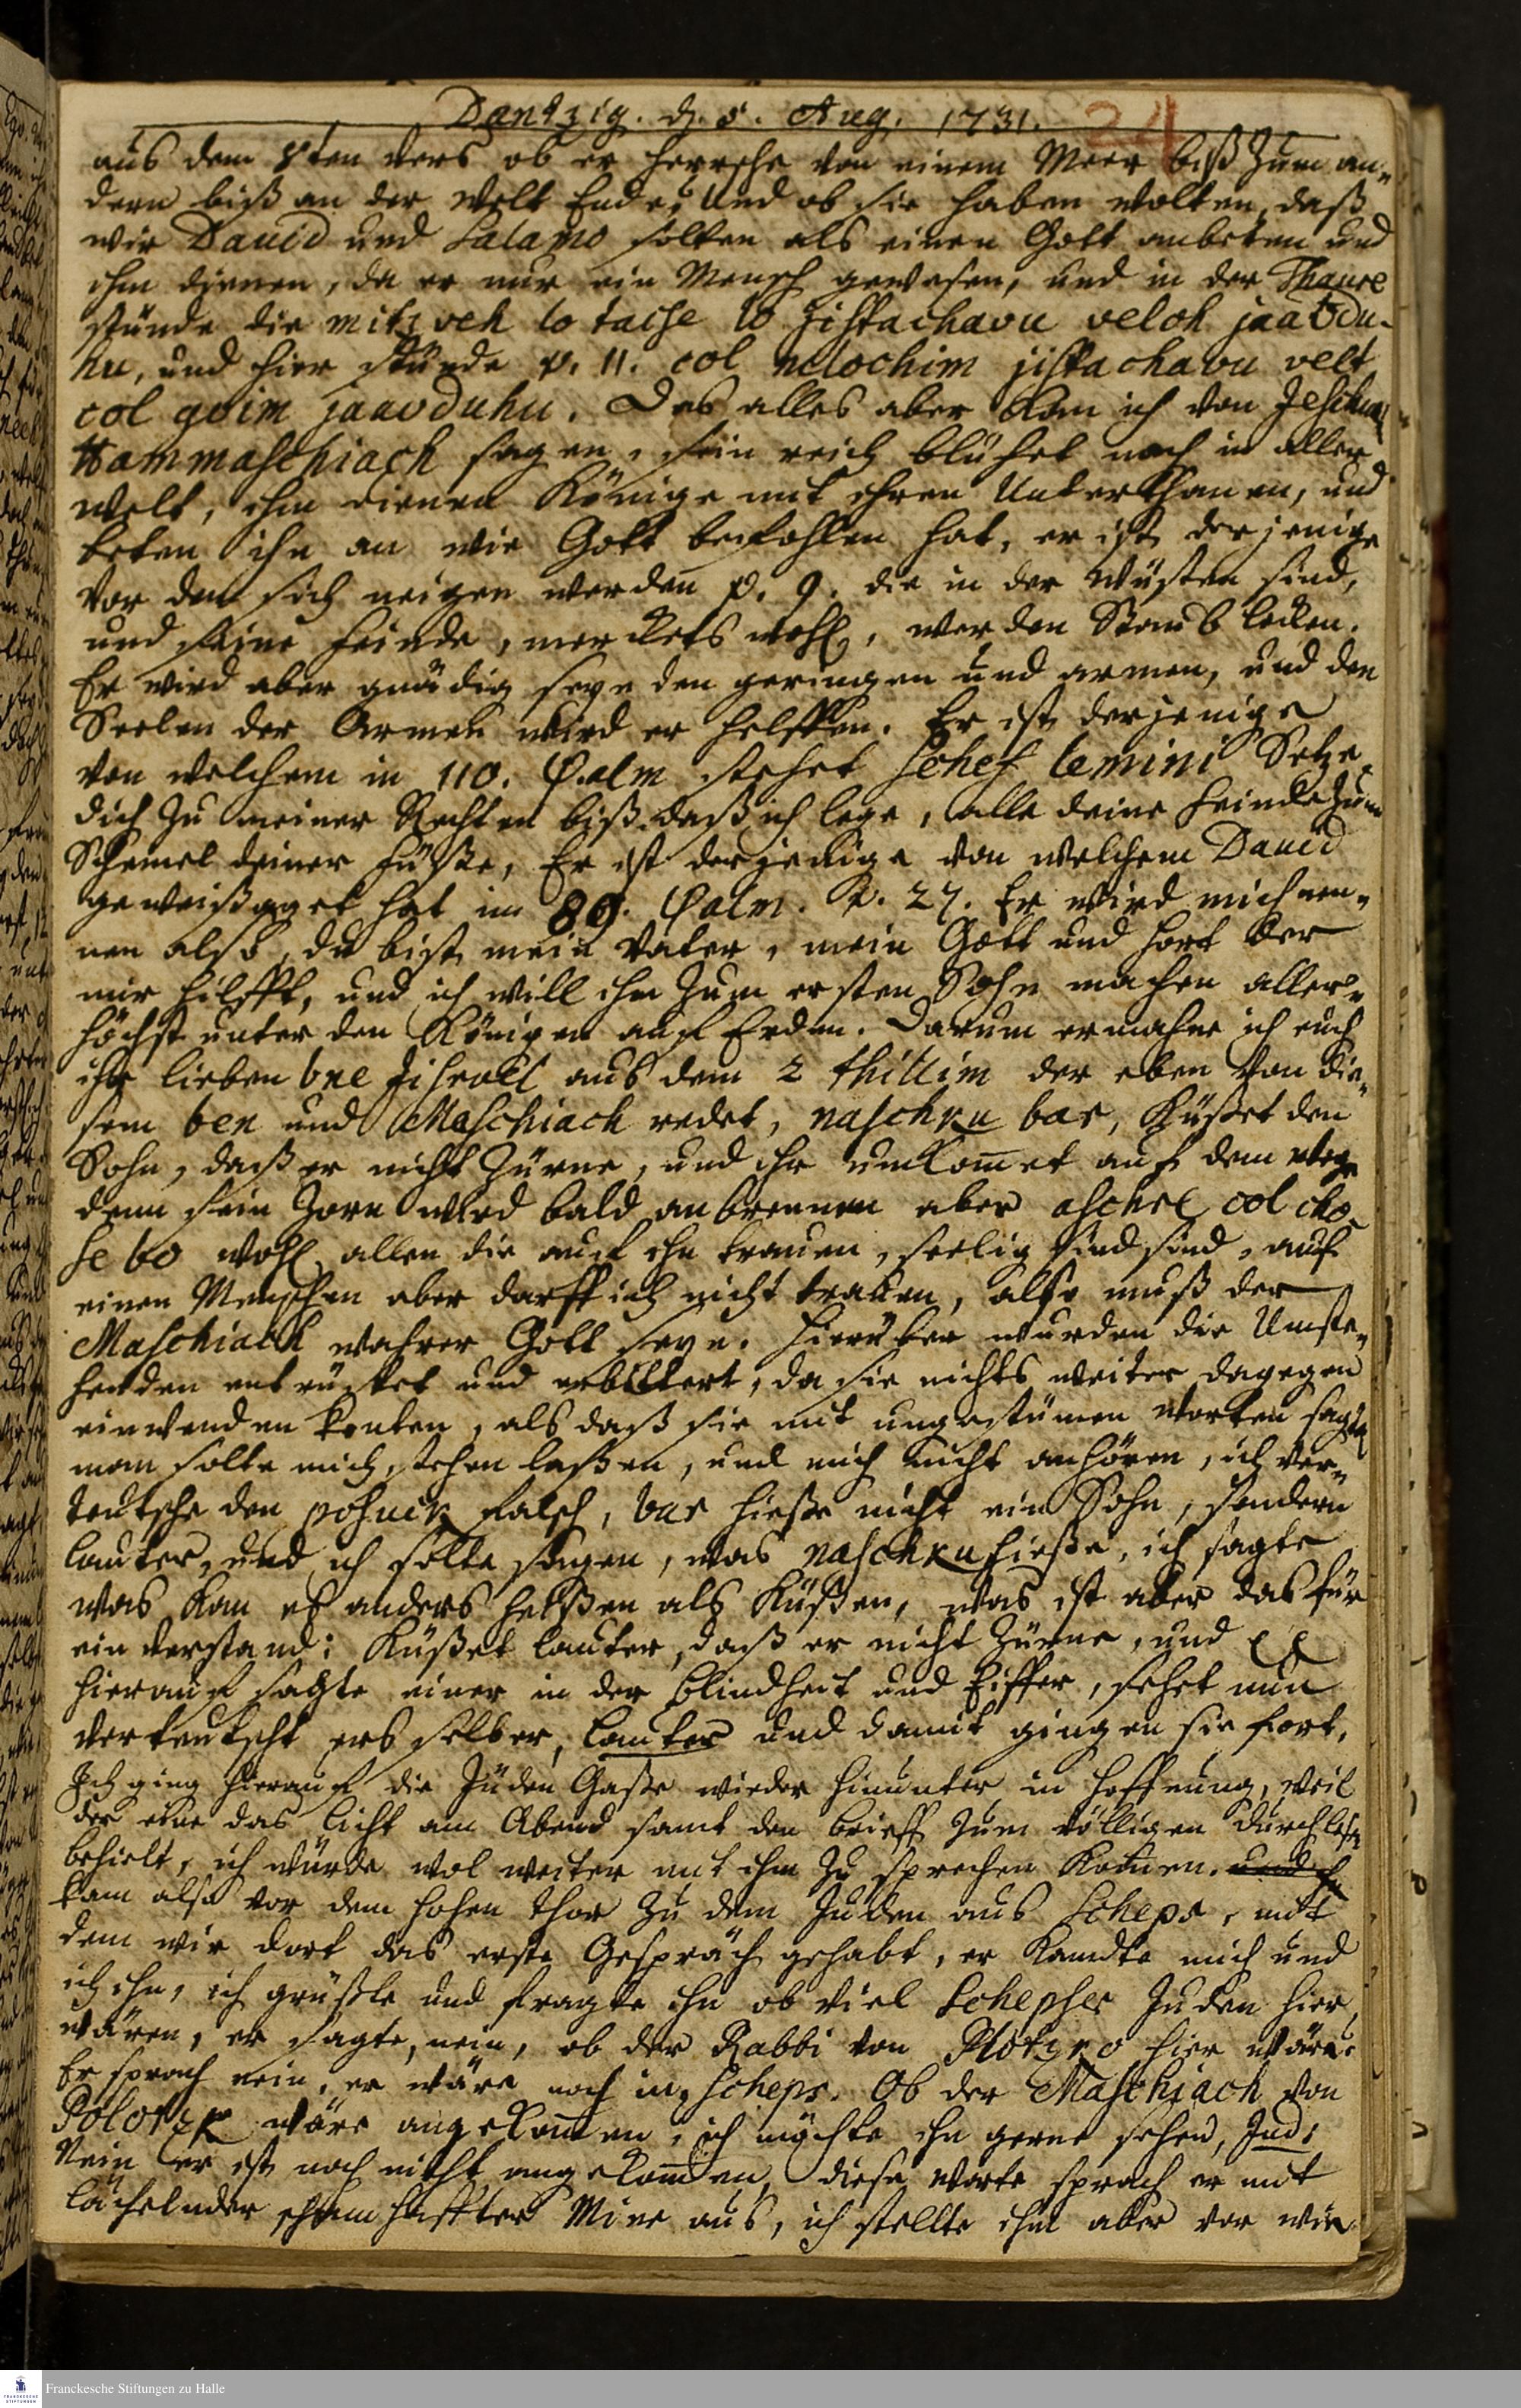 Dantzig. d. 5. Aug. 1731.
24
aus dem 8ten vers ob er herrsche von einem Meer biß zum an-
dern biß an der Welt Ende, und ob sie haben wolten, daß
wir David und Salamo solten als einen Gott anbeten und
ihm dienen, da er nur ein Mensch gewesen, und in der Thaure
stünde die mitzveh lo taise lo zistachavu veloh jaabdu-
hu, und hier stünde v. 11. col melochim jistachavu velt
col goim jaavduhu. Das alles aber kan ich von Jeschua
Hammaschiach sagen, sein reich blühet noch in aller
Welt, ihm dienen Könige mit ihren Unterthanen, und
beten ihn an wie Gott befohlen hat, er ist derjenige
vor dem sich neigen werden v. 9. die in der Wüsten sind,
und seine Feinde, merckets wohl, werden Staub lecken.
Er wird aber gnädig seyn den geringen und armen, und den
Seelen der Armen wird er helffen. Er ist derjenige
von welchem in 110. Psalm stehet schef lemini Setze
dich zu meiner Rechten biß daß ich lege, alle deine Feinde zum
Schemel deiner Füße, Er ist derjenige von welchem David
geweißaget hat im 89. Psalm. v. 27. Er wird mich nen-
nen also, du bist mein Vater, mein Gott und Hort der
mir hilfft, und ich will ihn zum ersten Sohn machen aller-
höchst unter den Königen auf Erden. Darum ermahne ich euch
ihr lieben bne Jisroel aus dem 2 thillim der eben von die-
sem ben und Maschiach redet, naschku bar, Küßet den
Sohn, daß er nicht zürne, und ihr umkommet auf dem Wege
denn sein Zorn wird bald anbrennen aber aschre col cho-
se bo wohl allen die auf ihn trauen, seelig sind sind, auf
einen Menschen aber darff ich nicht trauen, also muß der
Maschiach wahrer Gott seyn. Hierüber wurden die Umste-
henden entrüstet und erbittert, da sie nichts weiter dagegen
einwenden konten, als daß sie mit ungestümen Worten sagten
man solte mich stehen laßen, und mich nicht anhören, ich ver-
teutsche den pohuck falsch, bar hieße nicht ein Sohn, sondern
lauter, und ich solte sagen, was naschku hieße, ich sagte
was kan es anders heißen als Küßen, was ist aber das für
ein Verstand: Küßet lauter, daß er nicht zürne, und
hierauf sagte einer in der Blindheit und Eiffer, sehet nun
verteutscht ers selber, lauter und damit gingen sie fort.
Ich ging hierauf die Juden Gaße wieder hinunter in Hoffnung, weil
der eine das licht am Abend samt den brieff zum völligen durchlesen
behielt, ich würde wol weiter mit ihm zu sprechen Kommen. und ich
kam also vor dem hohen Thor zu dem Juden aus Scheps, mit
dem wir dort das erste Gespräch gehabt, er kandte mich und
ich ihn, ich grüßte und fragte ihn ob viel Schepser Juden hier
wären, er sagte, nein, ob der Rabbi von Plotzko hier wäre
Er sprach nein, er wäre noch in Scheps. Ob der Maschiach von
Polotzk wäre angekommen, ich möchte ihn gerne sehen, Jud:
Nein er ist noch nicht angekommen, diese Worte sprach er mit
lächelnder schamhaffter Mine aus, ich stellte ihm aber vor wie
Franckesche Stiftungen zu Halle